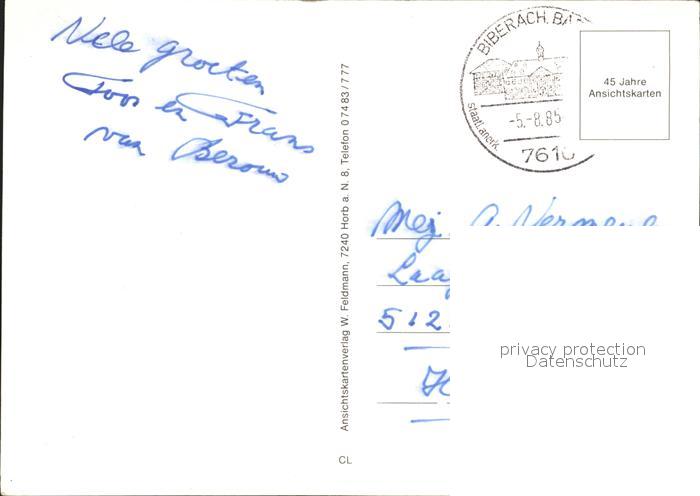 Vele groeten
Toos en Frans
van Beroun
Ansichtskartenverlag W. Feldmann, 7240 Horb a. N. 8, Telefon 0 74 83 / 777
CL
BIBERACH, BA
staatl. anerk.
-5.-8.85
7616
45 Jahre
Ansichtskarten
Mej. A. Vermeul
Laa
512
privacy protection
Datenschutz